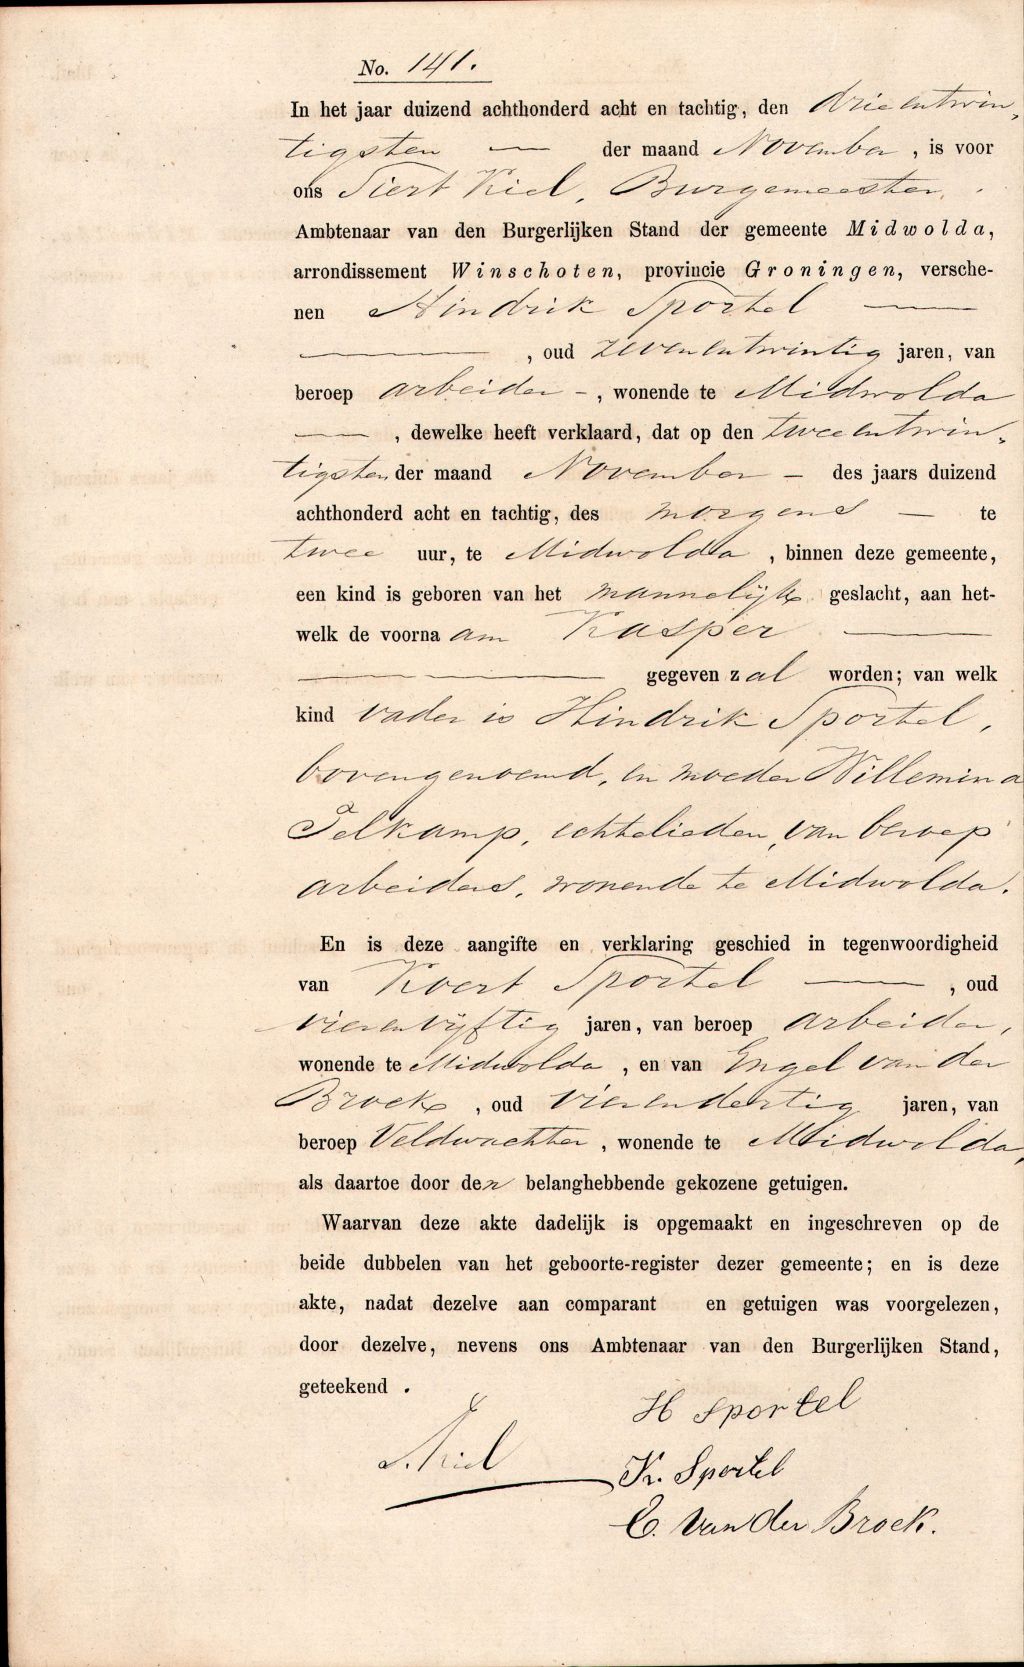 No. 141.
In het jaar duizend achthonderd acht en tachtig, den drieentwin„
tigsten — der maand November, is voor
ons Siert Kiel, Burgemeester,
Ambtenaar van den Burgerlijken Stand der gemeente Midwolda,
arrondissement Winschoten, provincie Groningen, versche-
nen Hindrik Sportel —
— , oud zevenentwintig jaren, van
beroep arbeider - , wonende te Midwolda
— , dewelke heeft verklaard, dat op den tweeentwin„
tigsten der maand November - des jaars duizend
achthonderd acht en tachtig, des morgens — te
twee uur, te Midwolda , binnen deze gemeente,
een kind is geboren van het mannelijke geslacht, aan het-
welk de voornaam Kasper —
— gegeven zal worden; van welk
kind vader is Hindrik Sportel,
bovengenoemd, en moeder Willemina
Telkamp, echtelieden, van beroep
arbeiders, wonende te Midwolda.
En is deze aangifte en verklaring geschied in tegenwoordigheid
van Koert Sportel — , oud
vierenvijftig jaren, van beroep arbeider,
wonende te Midwolda , en van Engel van der
Broek , oud vierendertig jaren, van
beroep Veldwachter , wonende te Midwolda,
als daartoe door den belanghebbende gekozene getuigen.
Waarvan deze akte dadelijk is opgemaakt en ingeschreven op de
beide dubbelen van het geboorte-register dezer gemeente; en is deze
akte, nadat dezelve aan comparant en getuigen was voorgelezen,
door dezelve, nevens ons Ambtenaar van den Burgerlijken Stand,
geteekend .
H Sportel
S. Kiel
K. Sportel
E. van der Broek.